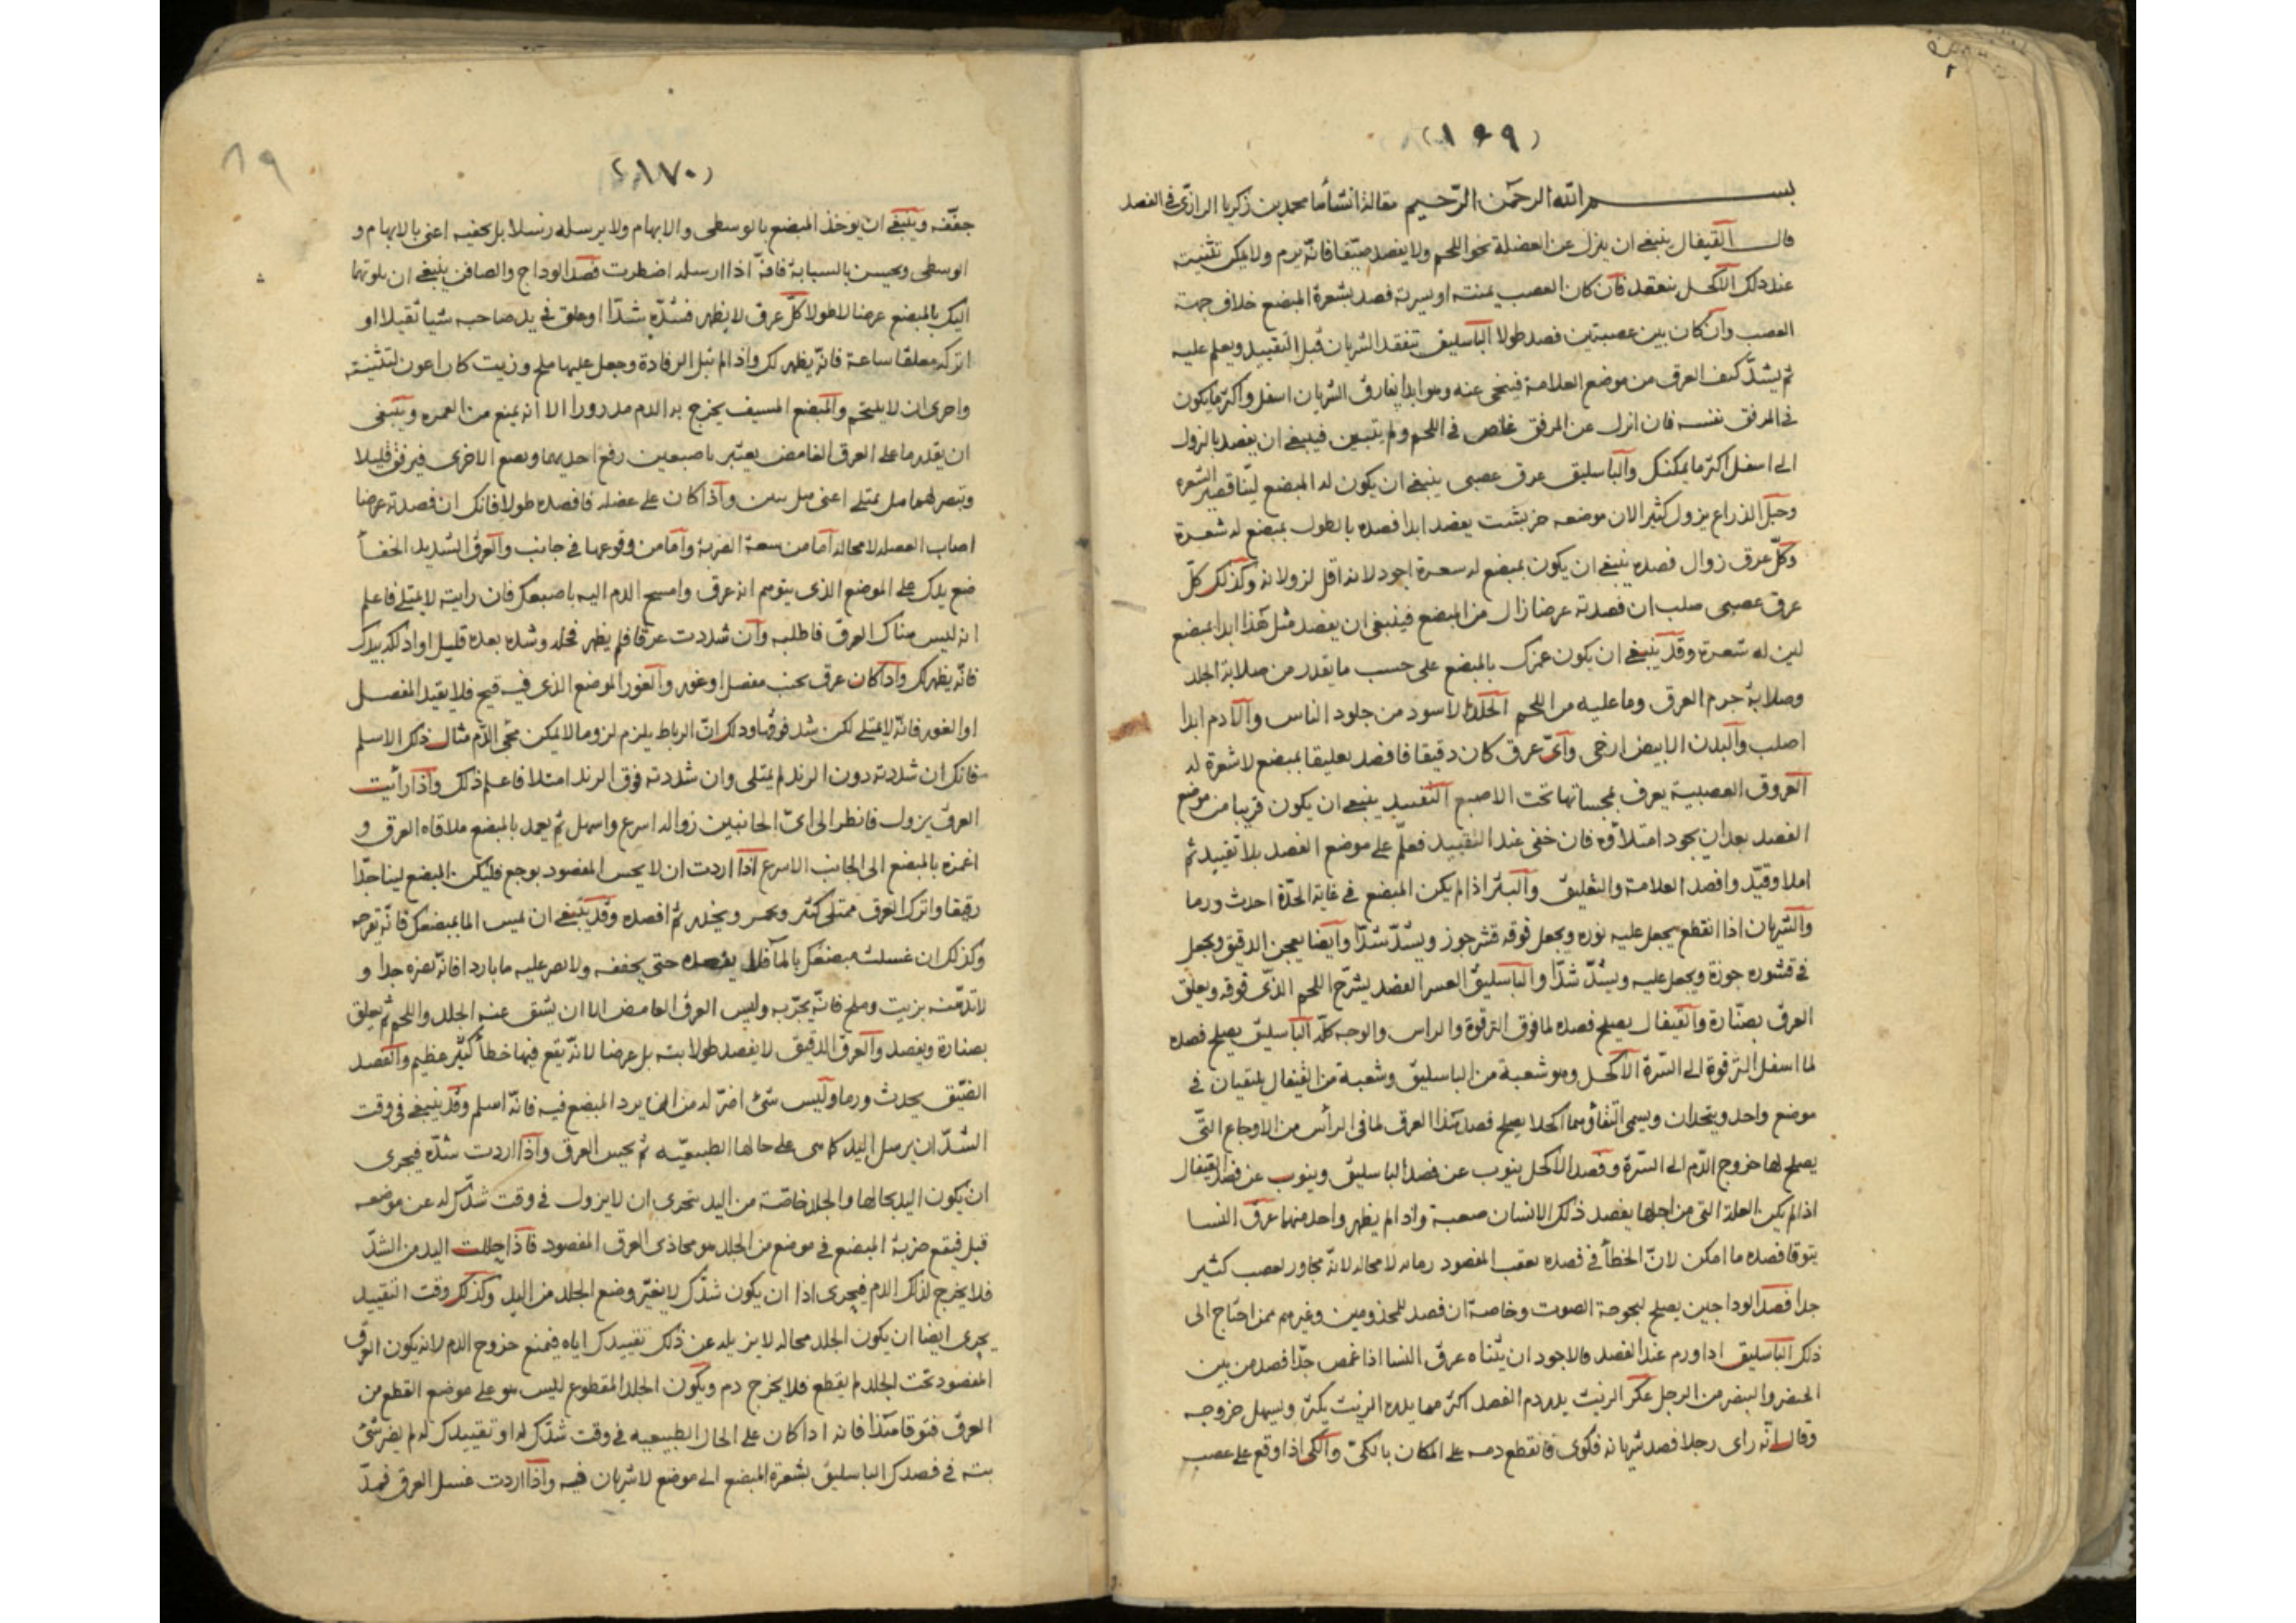 (١٦٩)
بسم الله الرحمن الرحيم مقالة انشأها محمد بن زكريا الرازي في الفصد
قال القيفال ينبغي ان ينزل عن العضلة نحو اللحم ولا يفصد ضيقا فانه يرم ولا يمكن تثنيته
عند ذلك الاكحل يتفقد فان كان العصب يمنته او يسرته فصد بشعرة المبضع خلاف جهة
العصب وان كان بين عصبتين فصد طولا الباسليق يتفقد الشريان قبل التقييد ويعلم عليه
ثم يشد كيف العرق من موضع العلامة فينحى عنه وهو ابدا يفارق الشريان اسفل واكثر ما يكون
في المرفق نفسه فان انزل عن المرفق غاص في اللحم ولم يتبين فينبغي ان يفصد بالنزول
الى اسفل اكثر ما يمكنك والباسليق عرق عصبي ينبغي ان يكون له المبضع لينا قصير الشعرة
وحبل الذراع يزول كثيرا لان موضعه يفصد ابدا فصده بالطول بمبضع له شعرة
وكل عرق زوال فصده ينبغي ان يكون بمبضع له شعرة اجود لانه اقل لزولانه وكذلك كل
عرق عصبي صلب ان فصدته عرضا زال من المبضع فينبغي ان يفصد مثل هذا ابدا بمبضع
لين له شعرة وقد ينبغي ان يكون غمزك بالمبضع على حسب ما يقدر من صلابة الجلد
وصلابة جرم العرق وما عليه من اللحم الجلد الاسود من جلود الناس والآدم ابدا
اصلب والبدن الابيض ارخى واي عرق كان دقيقا فافصد تعليقا بمبضع لا شعرة له
العروق العصبية يعرف بمجساتها تحت الاصبع التقييد ينبغي ان يكون قريبا من موضع
الفصد بعد ان يجود امتلاؤه فان خفى عند التقييد فعلم على موضع الفصد بلا تقييد ثم
املا وقيد وافصد العلامة والتعليق والبثر اذا لم يكن المبضع في غاية الحدة احدث ورما
والشريان اذا انقطع يجعل عليه نوره ويجعل فوقه قشر جوز ويشد شدا وايضا يعجن الدقيق ويجعل
في قشوره جوزة ويجعل عليه ويشد شدا والباسليق العسر الفصد يشرح اللحم الذي فوقه ويعلق
العرق بصنارة والقيفال يصلح فصده لما فوق الترقوة والراس والوجه كله الباسليق يصلح فصده
لما اسفل الترقوة الى السرة الاكحل وهو شعبة من الباسليق وشعبة من القيفال يلتقيان في
موضع واحد ويتحدان ويسمى التقاؤهما اكحلا يصلح فصد هذا العرق لما في الرأس من الاوجاع التي
يصلح لها خروج الدم الى السرة وفصد الاكحل ينوب عن فصد الباسليق وينوب عن فصد القيفال
اذا لم يكن العلة التي من اجلها يفصد ذلك الانسان صعبة واذا لم يظهر واحد منهما عرق النسا
يتوقا فصده ما امكن لان الخطأ في فصده يعقب المفصود زمانه لا محالة لانه مجاور لعصب كثير
جدا فصد الوداجين يصلح لبحوحة الصوت وخاصة ان فصد للمجذومين وغيرهم ممن احتاج الى
ذلك الباسليق اذا ورم عند الفصد فالاجود ان يثناه عرق النسا اذا غمض جدا فصد من بين
الخنصر والبنصر من الرجل عكر الزيت يدر دم الفصد اكثر مما يدره الزيت بكثر ويسهل خروجه
وقال انه راى رجلا فصد شريانه فكوى فانقطع دمه على المكان بالكي والكي اذا وقع على عصب
٨٩
(١٧٠)
جففه وينبغي ان يوخذ المبضع بالوسطى والابهام ولا يرسله رسلا بل يحفيه اعنى بالابهام و
الوسطى ويحبس بالسبابة فانه اذا ارسله اضطرب فصد الوداج والصافن ينبغي ان يلوتهما
اليك بالمبضع عرضا لا طولا كل عرق لا يظهر فشده شدا او علق في يد صاحبه شيا ثقيلا او
اتركه معلقا ساعة فانه يظهر لك واذا لم تبل الرفادة وجعل عليها ملح وزيت كان اعون لتثنيته
واحرى ان لا يلتحم والمبضع المسيف يخرج به الدم مدرورا الا انه يمنع من الغمره وينبغي
ان يقدر ما على العرق الغامض يعتبر باصبعين رفع احديهما ويضع الاخرى فيرفق قليلا
واذا كان على عضله فافصده طولا فانك ان فصدته عرضا
اصاب العضله لا محالة اما من سعة الضربة واما من وقوعها في جانب والعرق الشديد الخفأ
ضع يدك على الموضع الذي يتوهم انه عرق وامسح الدم اليه باصبعك فان رايته لا يمتلي فاعلم
انه ليس هناك العرق فاطلبه وان شددت عرقا فلم يظهر فحله وشده بعده قليل او ادلكه بيدك
فانه يظهر لك واذا كان عرق بجنب مفصل او غور والغور الموضع الذي فيه قيح فلا يقيد المفصل
او الغور فانه لا يمتلي لكن شد فوقها وذلك ان الرباط يلزم لزوما لا يمكن مجئ الدم مثال ذلك الاسلم
فانك ان شددته دون الزند لم يمتلى وان شددته فوق الزند امتلا فاعلم ذلك واذا رأيت
العرق يزول فانظر الى اي الجانبين زواله اسرع واسهل ثم يعمد بالمبضع ملاقاه العرق و
اغمزه بالمبضع الى الجانب الاسرع اذا اردت ان لا يحس المفصود بوجع فليكن المبضع لينا حدا
رقيقا واترك العرق ممتلى كثير ويحمر ويخدر ثم افصده وقد ينبغي ان لمس الما بمبضعك فانه يقرحه
وكذلك ان غسلت مبضعك بالما فلا يفصده حتى يجففه ولا يصر عليه ما باردا فانه يضره جدا و
لا تدهنه بزيت وملح فانه يجربه وليس العرق الغامض الا ان يشق عنه الجلد واللحم ثم يعلق
بصنارة ويفصد والعرق الدقيق لا يفصد طولا بته بل عرضا لانه يقع فيها خطأ كثير عظيم والفصد
الضيق يحدث ورما وليس شئ اضر له من ان يرد المبضع فيه فانه اسلم وقد ينبغي في وقت
الشد ان يرسل اليد كما هى على حالها الطبيعيه ثم يجس العرق واذا اردت شده فيجرى
ان يكون اليد بحالها والجلد خاصة من اليد يتحرى ان لا يزول في وقت شدك له عن موضعه
قبل فيقع ضربة المبضع في موضع من الجلد هو محاذى العرق المفصود فاذا حللت اليد من الشد
فلا يخرج لذلك الدم فيجرى اذا ان يكون شدك لا يغير وضع الجلد من اليد وكذلك وقت التقييد
يجرى ايضا ان يكون الجلد بحاله لا يزيله عن ذلك تقييدك اياه فيمنع خروج الدم لانه يكون العرق
المفصود تحت الجلد لم يقطع فلا يخرج دم ويكون الجلد المقطوع ليس هو على موضع القطع من
العرق فتوقا هذا فانه اذا كان على الحال الطبيعيه في وقت شدك له او تقييدك له لم يضر شئ
بته في فصدك الباسليق بشعرة المبضع الى موضع لا شريان فيه واذا اردت غسل العرق فمد